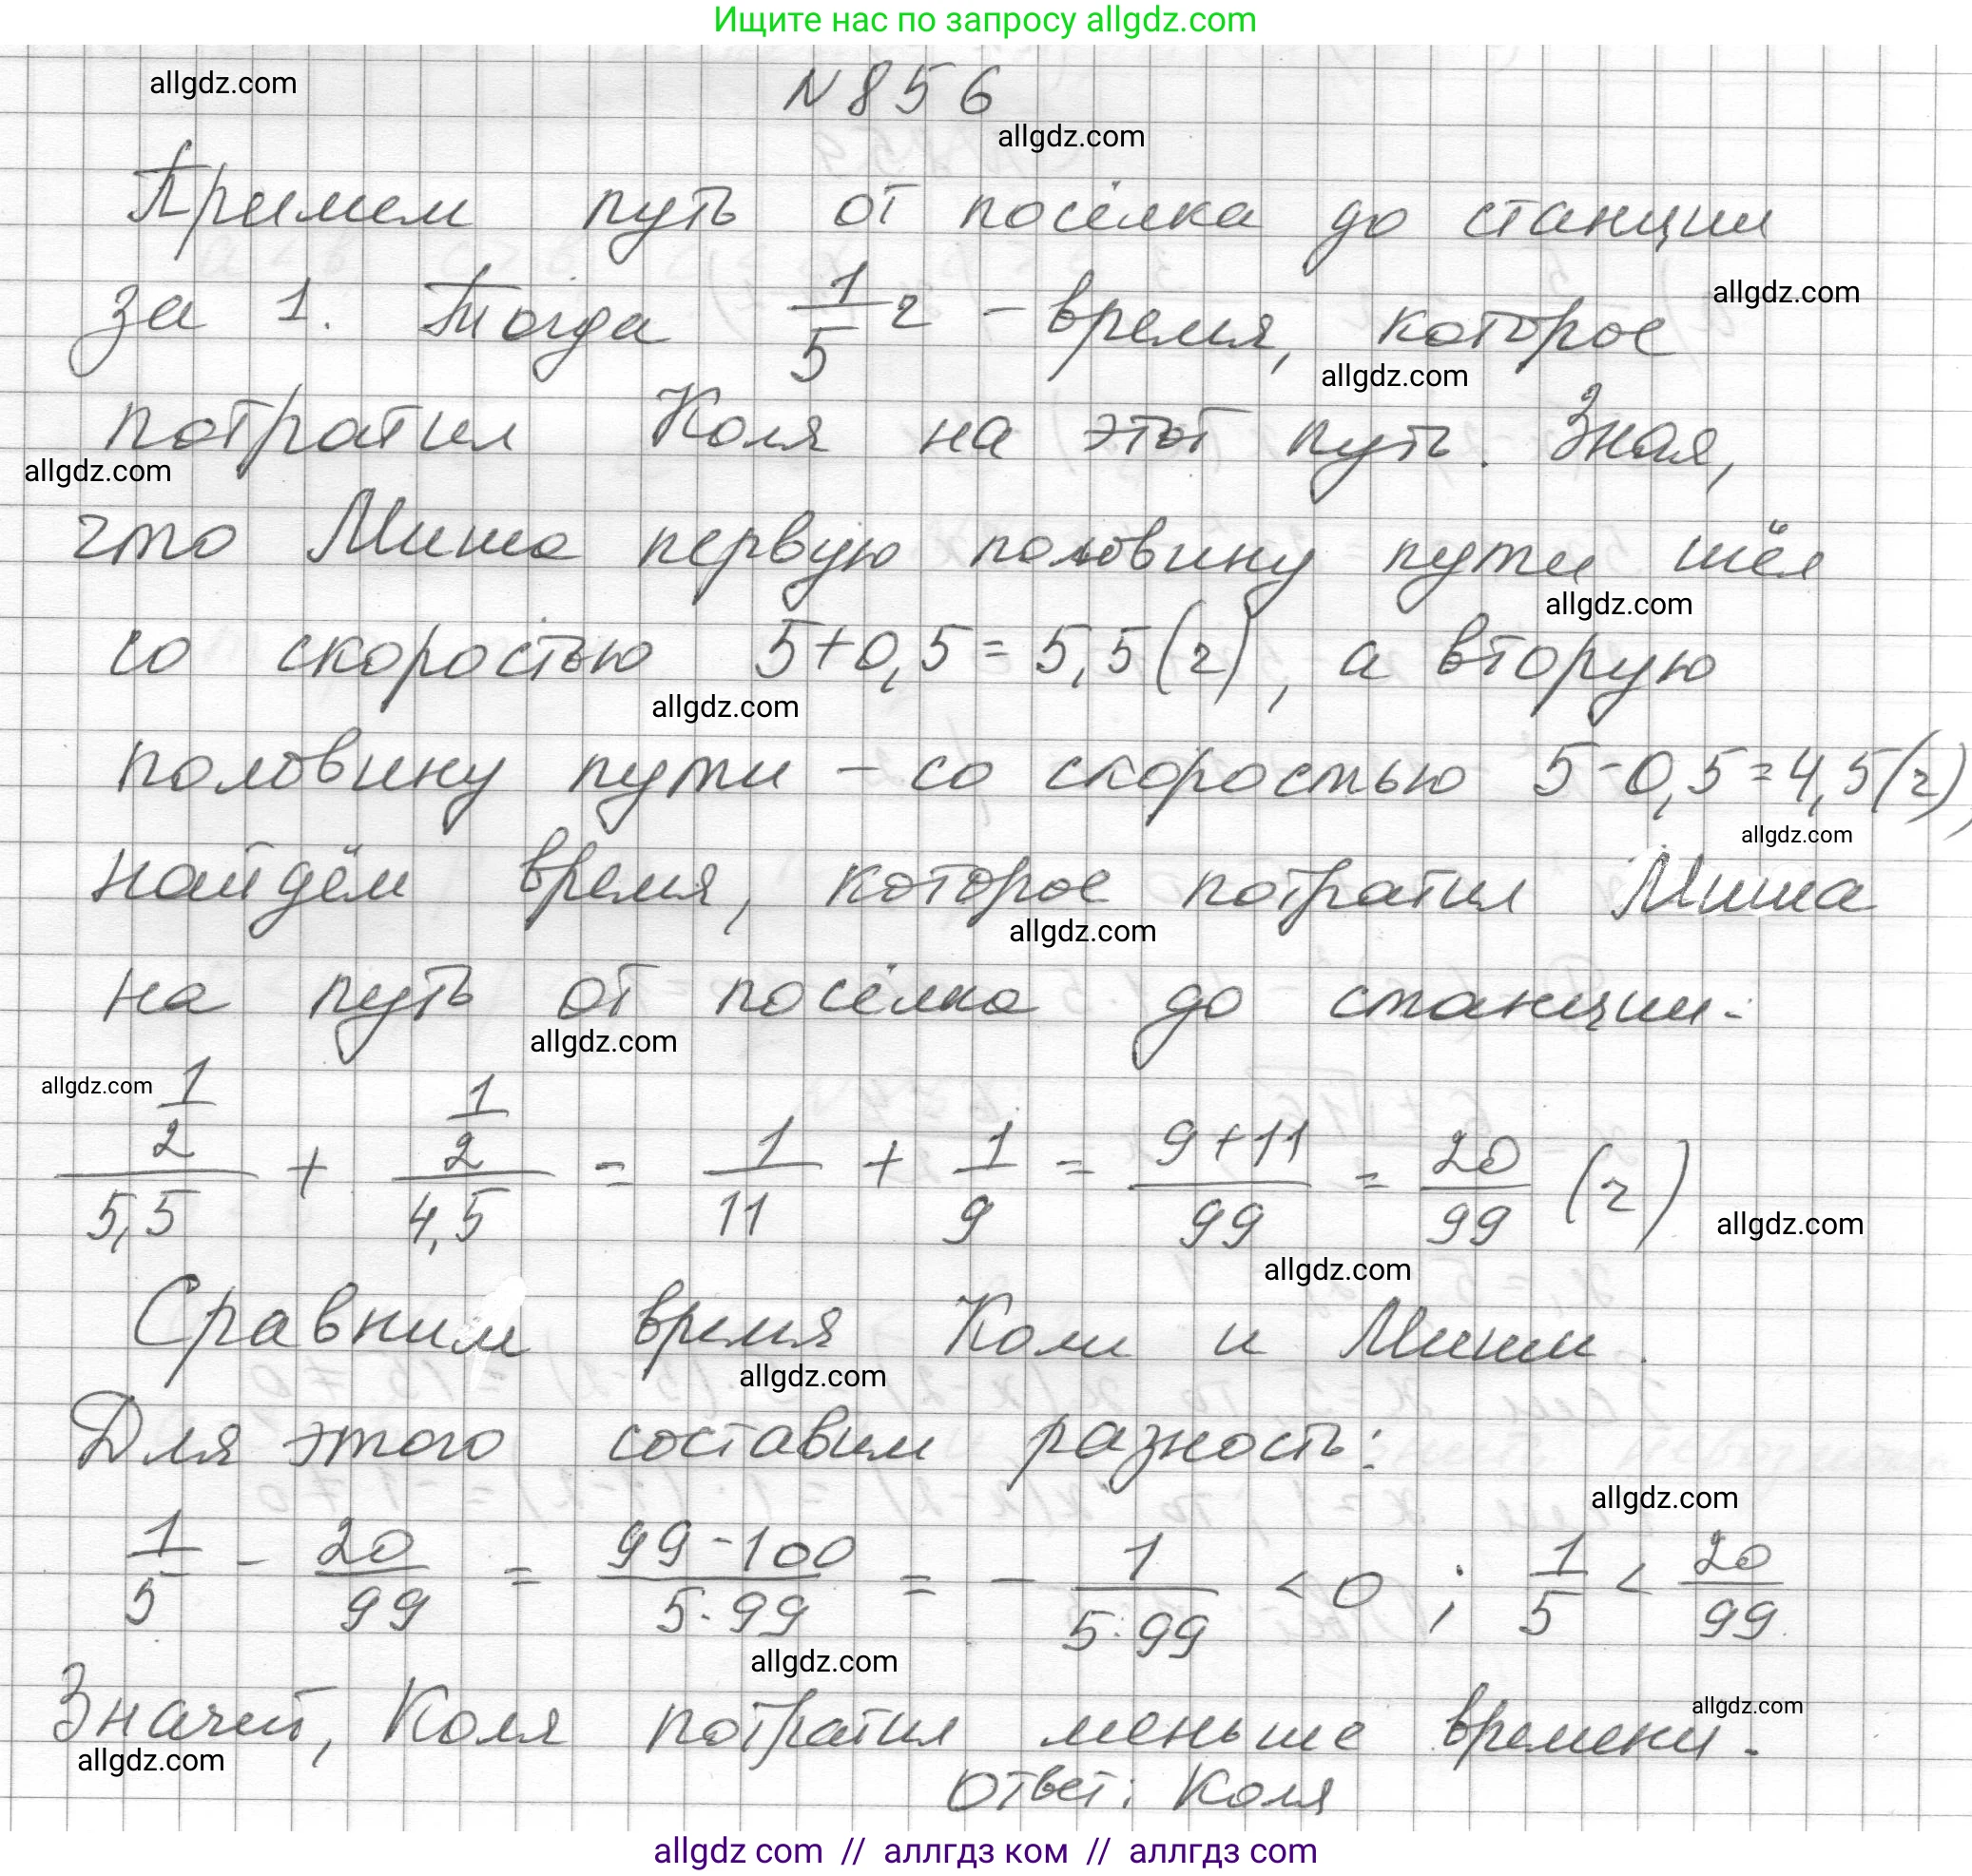 Ищите нас по запросу allgdz.com
allgdz.com
N 856
allgdz.com
Примем путь от посёлка до станции
за 1. Тогда 1/5 ч - время, которое
allgdz.com
allgdz.com
потратил Коля на этот путь. Зная,
allgdz.com
что Миша первую половину пути шёл
allgdz.com
со скоростью 5+0,5=5,5(ч), а вторую
allgdz.com
половину пути - со скоростью 5-0,5=4,5(ч),
allgdz.com
найдём время, которое потратил Миша
allgdz.com
на путь от посёлка до станции:
allgdz.com
allgdz.com
(1/2)/5,5 + (1/2)/4,5 = 1/11 + 1/9 = (9+11)/99 = 20/99 (ч)
allgdz.com
allgdz.com
Сравним время Коли и Миши.
allgdz.com
Для этого составим разность:
allgdz.com
1/5 - 20/99 = (99-100)/(5·99) = - 1/(5·99) <0 ; 1/5 < 20/99
allgdz.com
Значит, Коля потратил меньше времени.
allgdz.com
allgdz.com
Ответ: Коля
allgdz com // аллгдз ком // аллгдз com